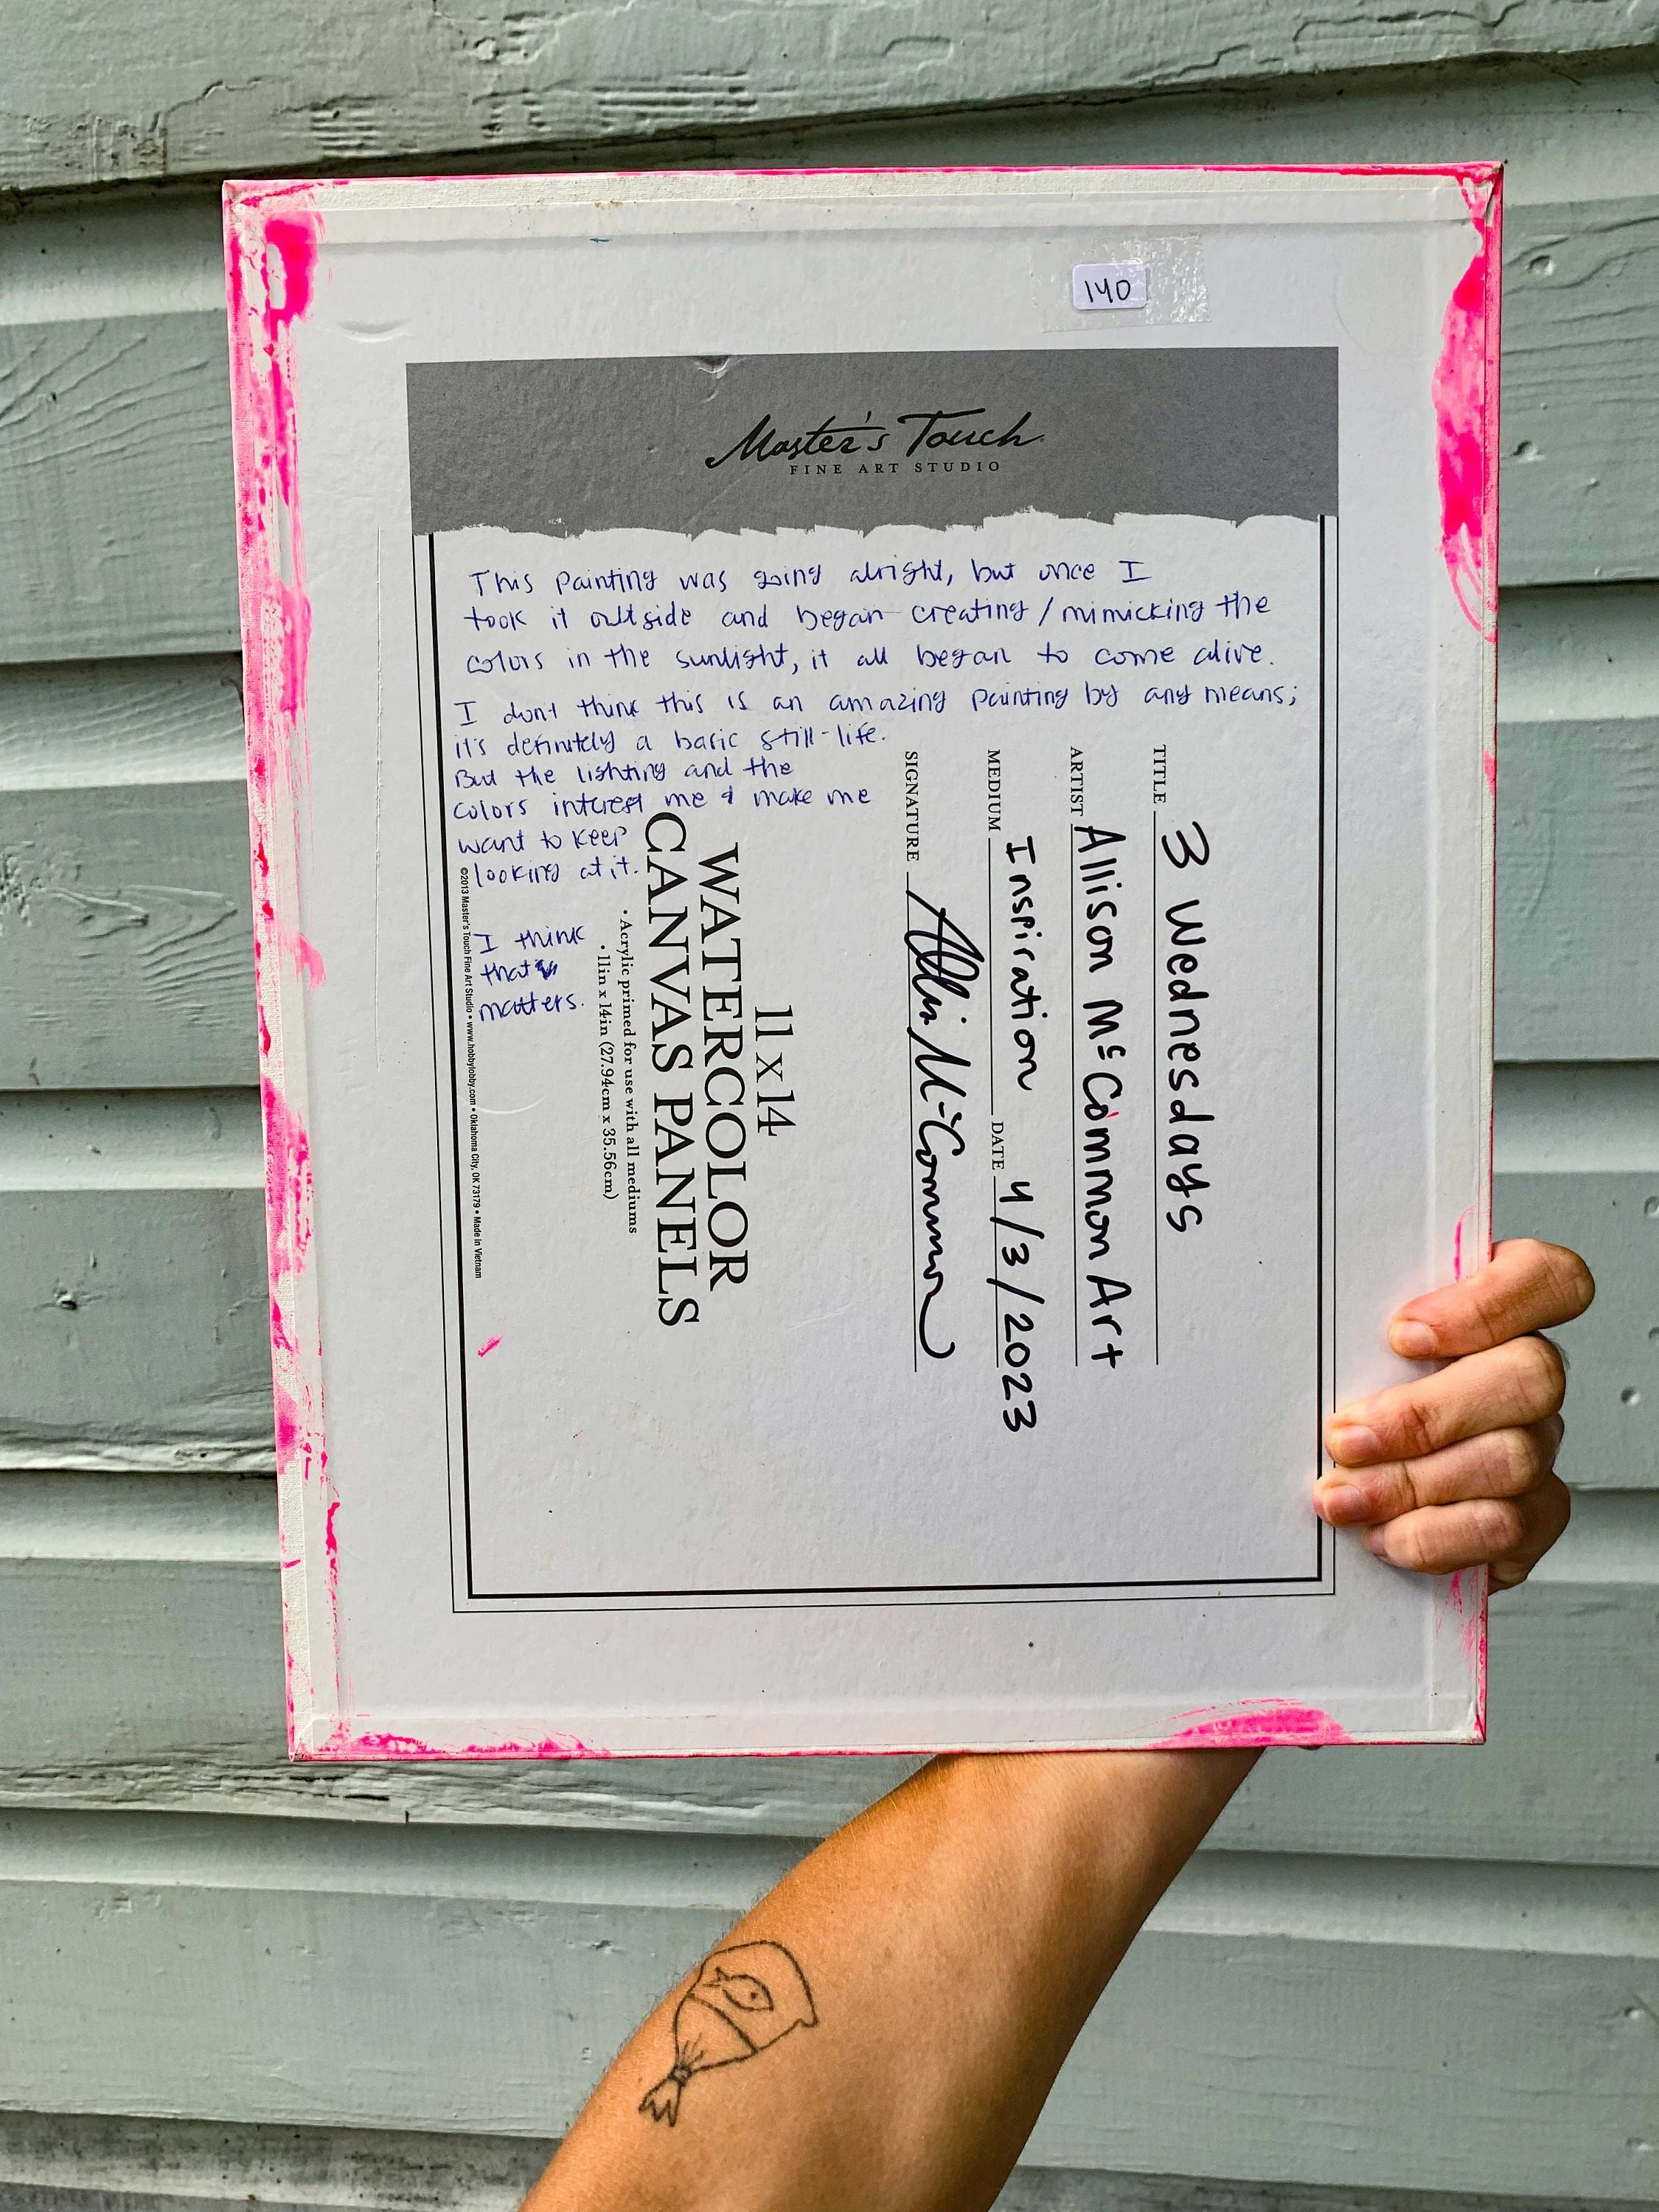 140
Master's Touch
FINE ART STUDIO
This painting was going alright, but once I
took it outside and began creating / mimicking the
colors in the sunlight, it all began to come alive.
I don't think this is an amazing painting by any means;
it's definitely a basic still-life.
But the lighting and the
colors interest me & make me
want to keep
looking at it.
I think
that
matters.
TITLE 3 Wednesdays
ARTIST Allison McCommon Art
MEDIUM Inspiration DATE 4/3/2023
SIGNATURE Alli McCommon
11 x 14
WATERCOLOR
CANVAS PANELS
• Acrylic primed for use with all mediums
• 11in x 14in (27.94cm x 35.56cm)
©2013 Master's Touch Fine Art Studio • www.hobbylobby.com • Oklahoma City, OK 73179 • Made in Vietnam